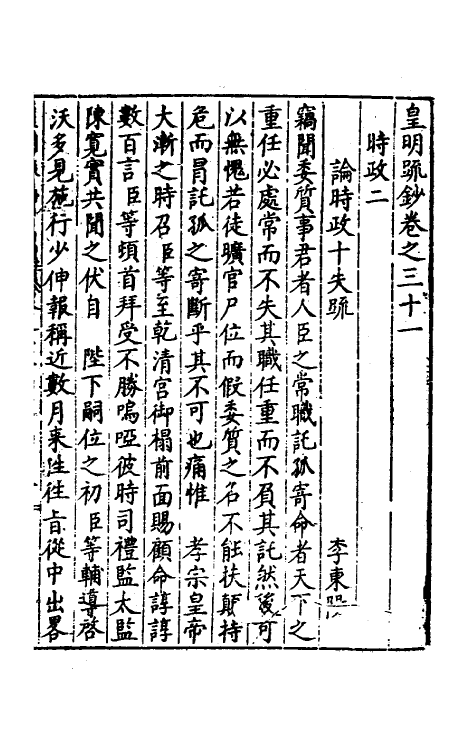 皇明疏鈔卷之三十一
時政二
論時政十失疏　李東
竊聞委質事君者人臣之常職託孤寄命者天下之
重任必處常而不失其職任重而不負其託然後可
以無愧若徒曠官尸位而假委質之名不能扶顛持
危而冒託孤之寄斷乎其不可也痛惟　孝宗皇帝
大漸之時召臣等至乾清宮御榻前面賜顧命諄諄
數百言臣等頓首拜受不勝嗚啞彼時司禮監太監
陳寬實共聞之伏自　陛下嗣位之初臣等輔導啓
沃多見施行少伸報稱近數月來往往旨從中出畧